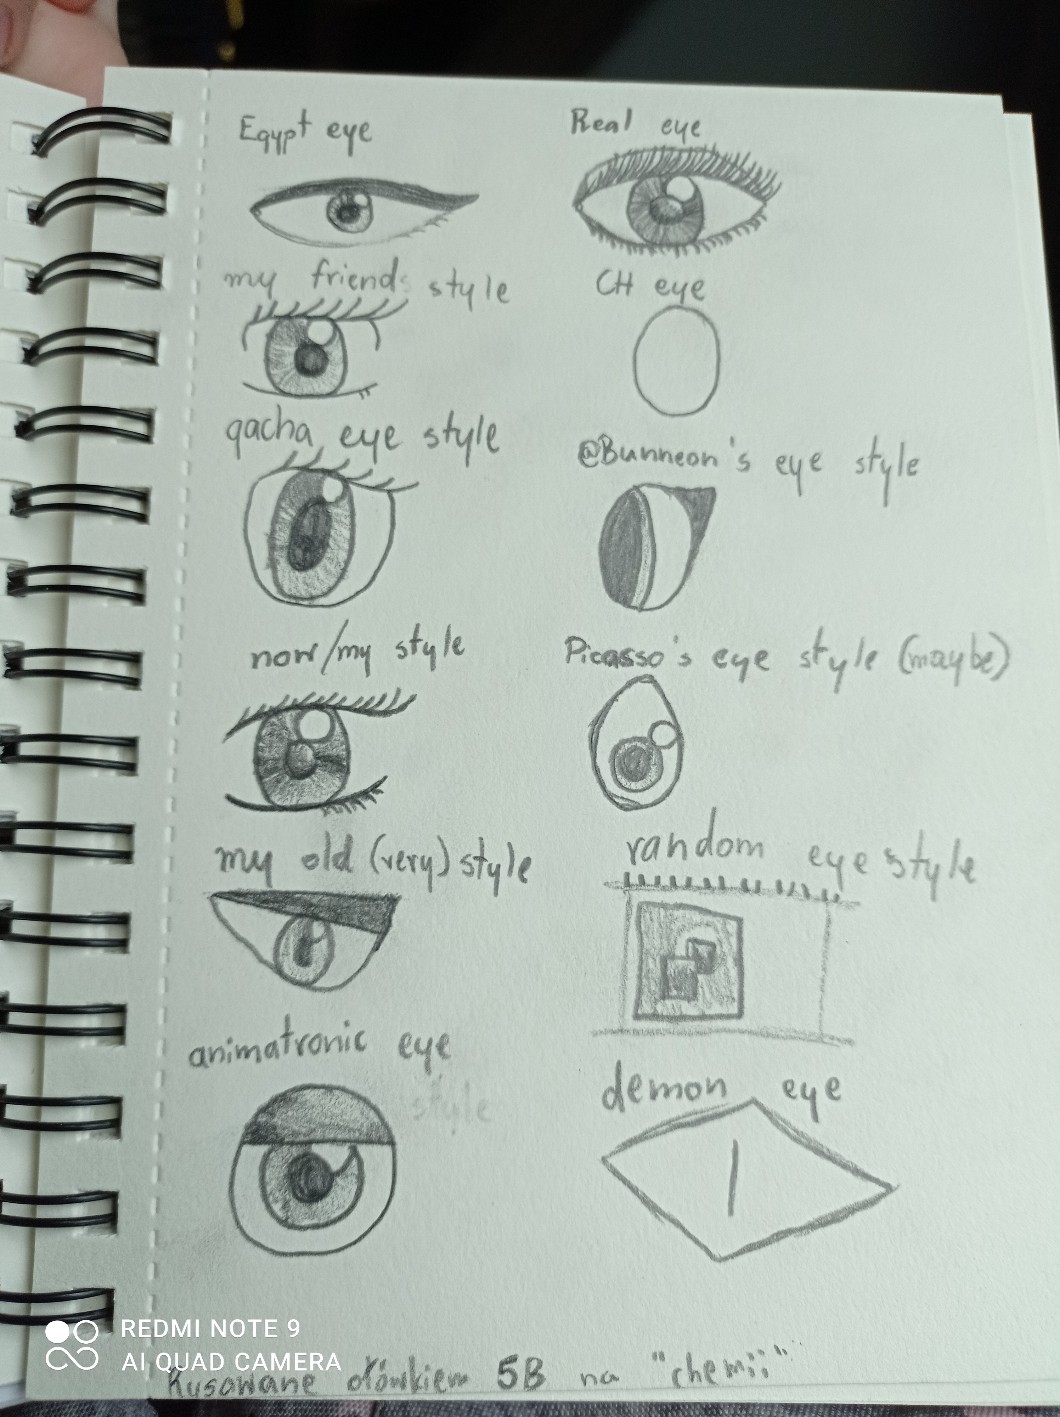 Egypt eye
Real eye
my friends style
CH eye
gacha eye style
@Bunneon's eye style
now/my style
Picasso's eye style (maybe)
my old (very) style
random eye style
animatronic eye
style
demon eye
REDMI NOTE 9
AI QUAD CAMERA
Rysowane ołówkiem 5B na "chemii"